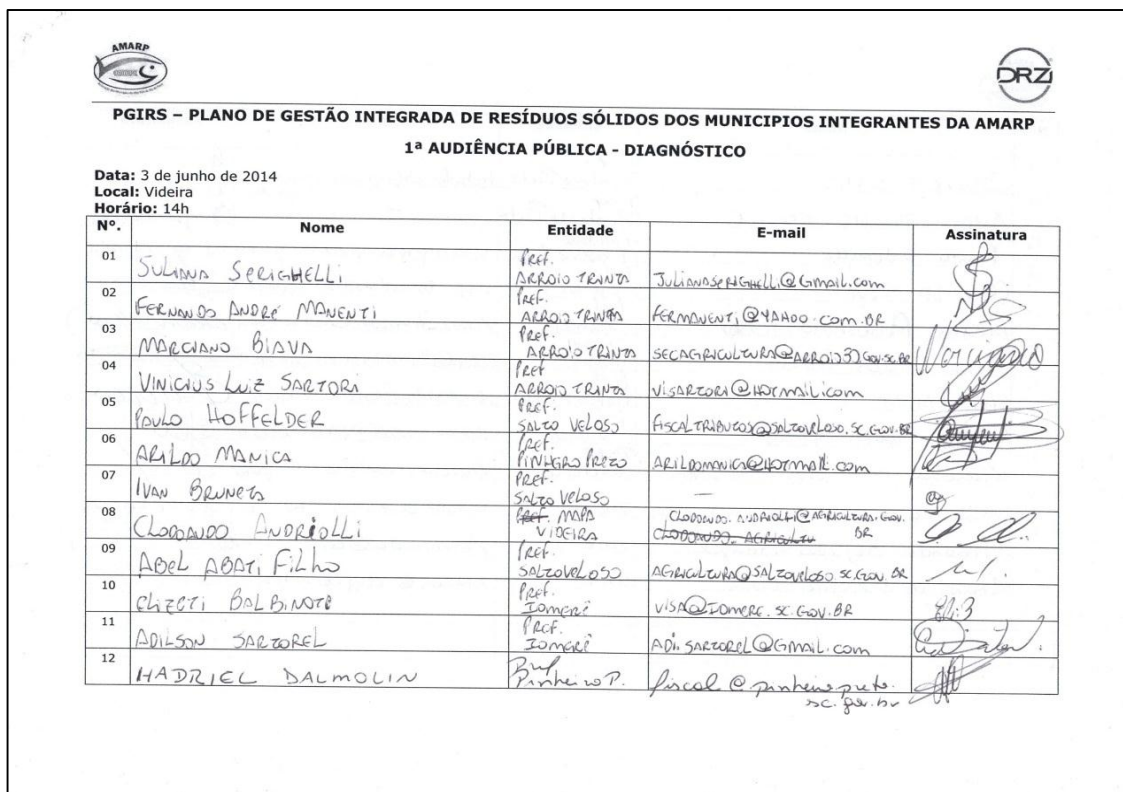 AMARP
DRZ
PGIRS – PLANO DE GESTÃO INTEGRADA DE RESÍDUOS SÓLIDOS DOS MUNICIPIOS INTEGRANTES DA AMARP
1ª AUDIÊNCIA PÚBLICA - DIAGNÓSTICO
Data: 3 de junho de 2014
Local: Videira
Horário: 14h
Nº. Nome Entidade E-mail Assinatura
01 JULIANA SERIGHELLI PREF. ARROIO TRINTA JULIANASERIGHELLI@GMAIL.COM
02 FERNANDO ANDRÉ MANENTI PREF. ARROIO TRINTA FERMANENTI@YAHOO.COM.BR
03 MARCIANO BIAVA PREF. ARROIO TRINTA SECAGRICULTURA@ARROIO30.GOV.SC.BR Marciano
04 VINICIUS LUIZ SARTORI PREF ARROIO TRINTA VISARTORI@HOTMAIL.COM
05 PAULO HOFFELDER PREF. SALTO VELOSO FISCALTRIBUTOS@SALTOVELOSO.SC.GOV.BR
06 ARILDO MANICA PREF. PINHEIRO PRETO ARILDOMANICA@HOTMAIL.COM
07 IVAN BRUNETO PREF. SALTO VELOSO —
08 CLODOALDO ANDRIOLLI PREF. MAPA VIDEIRA CLODOALDO.ANDRIOLLI@AGRICULTURA.GOV.BR
09 ABEL ABATI FILHO PREF. SALTO VELOSO AGRICULTURA@SALTOVELOSO.SC.GOV.BR
10 ELIZETI BALBINOTE PREF. IOMERÊ VISA@IOMERE.SC.GOV.BR
11 ADILSON SARTOREL PREF. IOMERÊ ADI.SARTOREL@GMAIL.COM
12 HADRIEL DALMOLIN Pinheiro P. fiscal@pinheiropreto.sc.gov.br